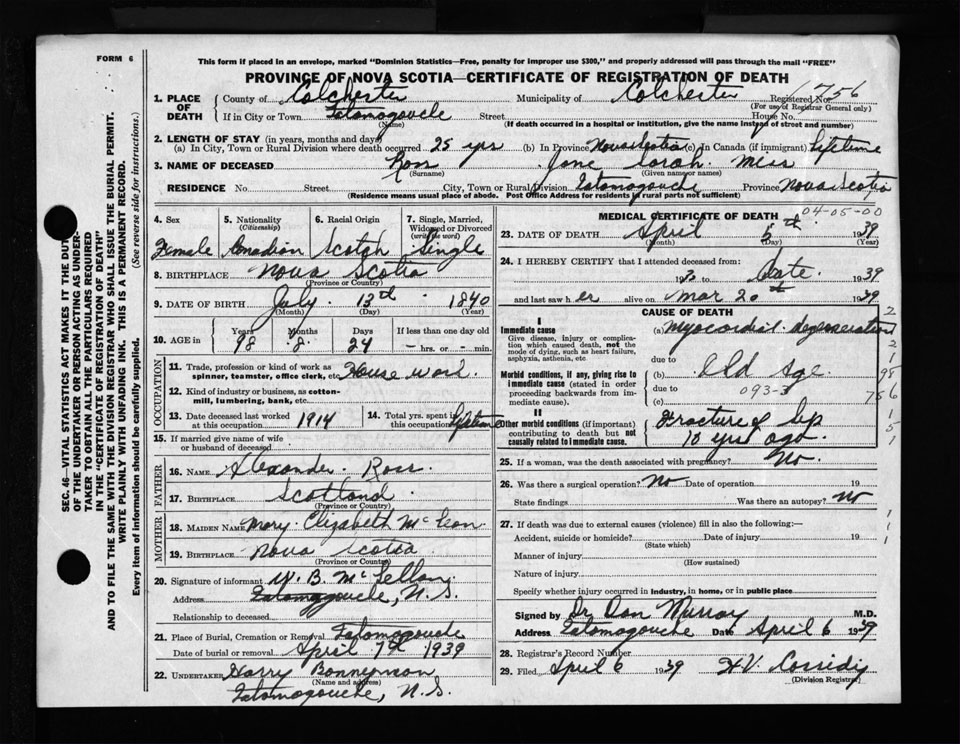 FORM 6
This form if placed in an envelope, marked "Dominion Statistics—Free, penalty for improper use $300," and properly addressed will pass through the mail "FREE"
PROVINCE OF NOVA SCOTIA—CERTIFICATE OF REGISTRATION OF DEATH
1. PLACE OF DEATH
County of Colchester Municipality of Colchester Registered No. 756
(For use of Registrar General only)
If in City or Town Tatamagouche Street House No.
(Name) (If death occurred in a hospital or institution, give the name instead of street and number)
2. LENGTH OF STAY (in years, months and days)
(a) In City, Town or Rural Division where death occurred 25 yrs (b) In Province Nova Scotia (c) In Canada (if immigrant) Lifetime
3. NAME OF DECEASED Ross Jane Sarah Miss
(Surname) (Given name or names)
RESIDENCE No. Street City, Town or Rural Division Tatamagouche Province Nova Scotia
(Residence means usual place of abode. Post Office Address for residents of rural parts not sufficient)
4. Sex 5. Nationality (Citizenship) 6. Racial Origin 7. Single, Married, Widowed or Divorced (write the word)
Female Canadian Scotch Single
8. BIRTHPLACE Nova Scotia
(Province or Country)
9. DATE OF BIRTH July 13th 1840
(Month) (Day) (Year)
10. AGE in Years Months Days If less than one day old
98 8 24 – hrs. or – min.
OCCUPATION
11. Trade, profession or kind of work as spinner, teamster, office clerk, etc. House work
12. Kind of industry or business, as cotton-mill, lumbering, bank, etc.
13. Date deceased last worked at this occupation 1914
14. Total yrs. spent in this occupation Lifetime
15. If married give name of wife or husband of deceased
FATHER
16. NAME Alexander Ross
17. BIRTHPLACE Scotland
(Province or Country)
MOTHER
18. MAIDEN NAME Mary Elizabeth McLeon
19. BIRTHPLACE Nova Scotia
(Province or Country)
20. Signature of informant W. B. McLellan
Address Tatamagouche, N.S.
Relationship to deceased
21. Place of Burial, Cremation or Removal Tatamagouche
Date of burial or removal April 7th 1939
22. UNDERTAKER Harry Bonnyman
(Name and address)
Tatamagouche, N.S.
MEDICAL CERTIFICATE OF DEATH
04-05-00
23. DATE OF DEATH April 5th 1939
(Month) (Day) (Year)
24. I HEREBY CERTIFY that I attended deceased from:
to date 1939
and last saw her alive on Mar 20th 1939
CAUSE OF DEATH
I
Immediate cause
Give disease, injury or complication which caused death, not the mode of dying, such as heart failure, asphyxia, asthenia, etc
(a) Myocardial degeneration
due to
Morbid conditions, if any, giving rise to immediate cause (stated in order proceeding backwards from immediate cause).
(b) Old age
due to 093-3
(c)
II
Other morbid conditions (if important) contributing to death but not causally related to immediate cause.
Fracture of hip
10 yrs ago
25. If a woman, was the death associated with pregnancy? No.
26. Was there a surgical operation? No Date of operation 19
State findings Was there an autopsy? No
27. If death was due to external causes (violence) fill in also the following:—
Accident, suicide or homicide? Date of injury 19
(State which)
Manner of injury
(How sustained)
Nature of injury
Specify whether injury occurred in industry, in home, or in public place
Signed by Dr Dan Murray M.D.
Address Tatamagouche Date April 6 1939
28. Registrar's Record Number
29. Filed April 6 1939 H.V. Cassidy
(Division Registrar)
SEC. 46—VITAL STATISTICS ACT MAKES IT THE DUTY
OF THE UNDERTAKER OR PERSON ACTING AS UNDERTAKER TO OBTAIN ALL THE PARTICULARS REQUIRED
IN THE "CERTIFICATE OF REGISTRATION OF DEATH"
AND TO FILE THE SAME WITH THE DIVISION REGISTRAR WHO SHALL ISSUE THE BURIAL PERMIT.
WRITE PLAINLY WITH UNFADING INK. THIS IS A PERMANENT RECORD.
Every item of information should be carefully supplied. (See reverse side for instructions.)